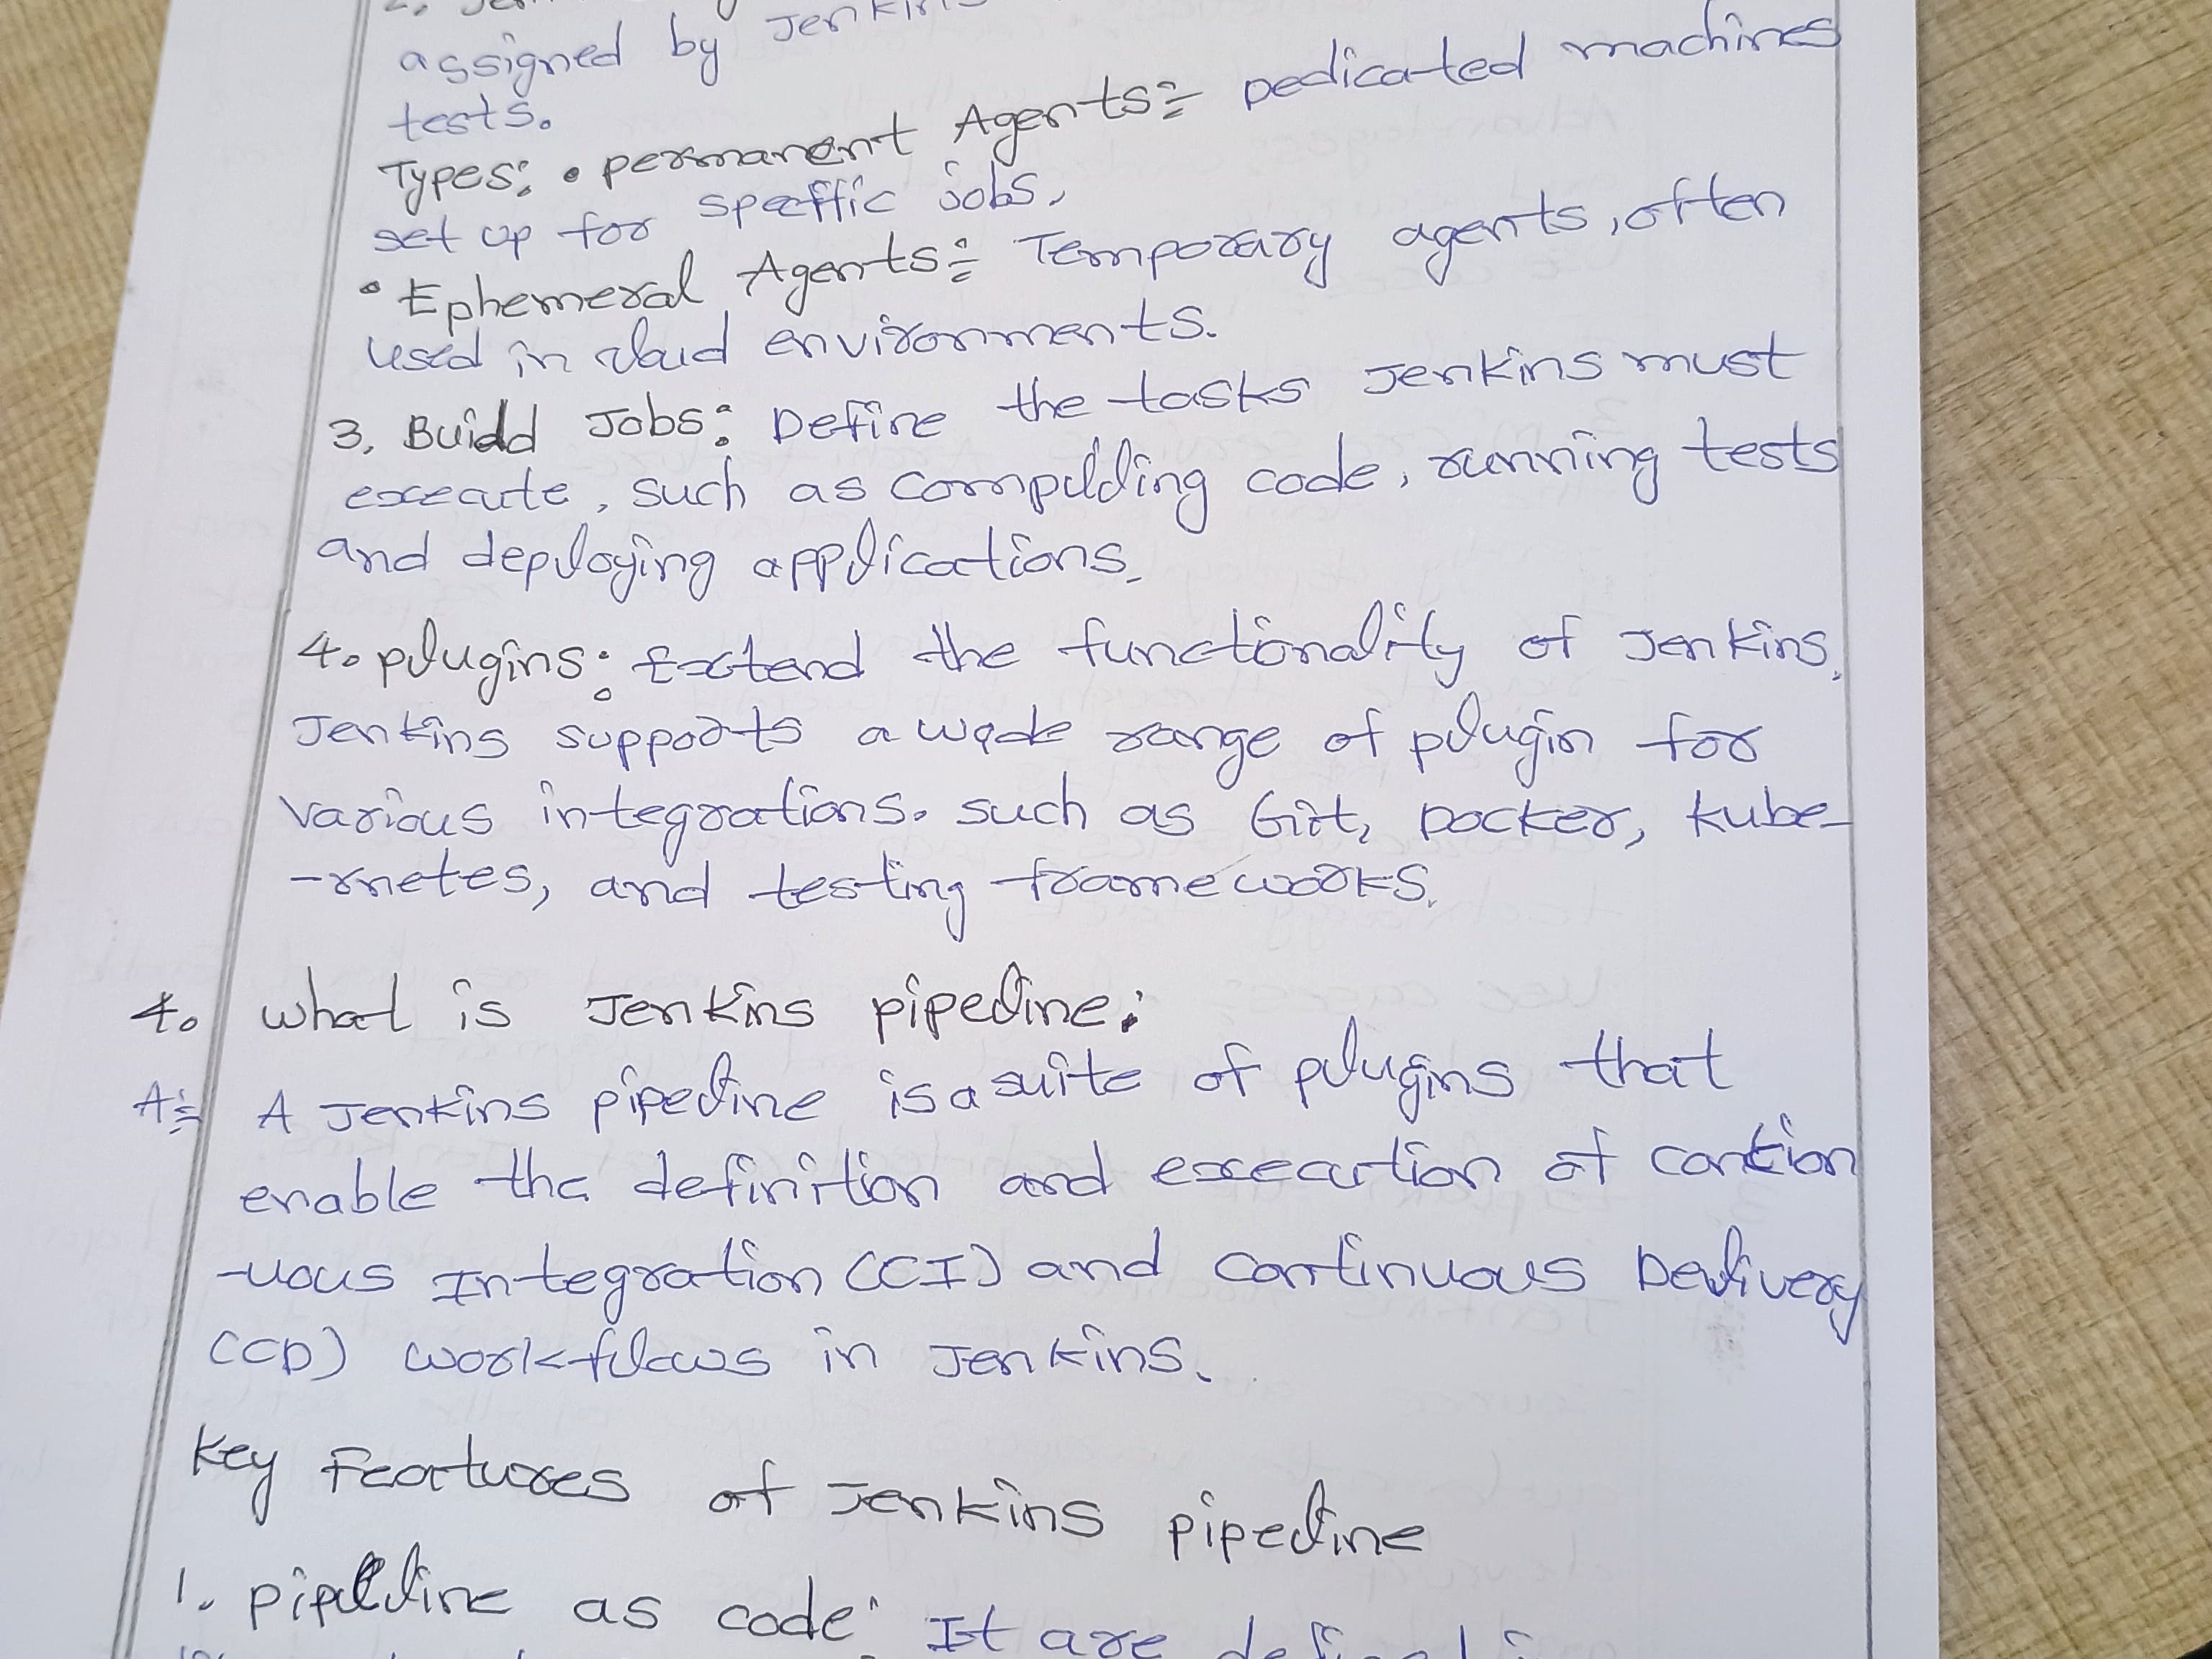 assigned by Jenkins
tests.
Types: • permanent Agents:- Dedicated machines
set up for speffic jobs.
• Ephemeral Agents:- Temporary agents, often
used in cloud environments.
3. Buidd Jobs: Define the tasks Jenkins must
execute, such as compilding code, running tests
and deploying applications.
4. plugins: Extend the functionality of Jenkins.
Jenkins supports a wide range of plugin for
various integrations. such as Git, Docker, kube-
-rnetes, and testing frameworks.
4. what is Jenkins pipeline:
A:- A Jenkins pipeline is a suite of plugins that
enable the definition and execution of contion
-uous Integration (CI) and Continuous Delivery
(CD) workflows in Jenkins.
Key Features of Jenkins pipeline
1. pipeline as code: It are